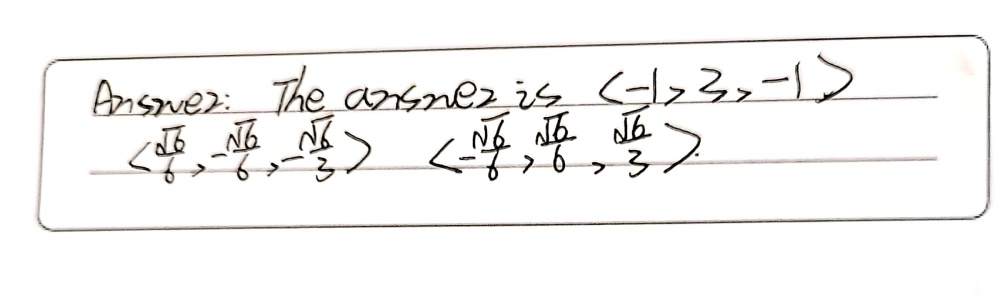 Answer: The answer is <-1, 3, -1>
<√6/6, -√6/6, -√6/3> <-√6/6, √6/6, √6/3>.